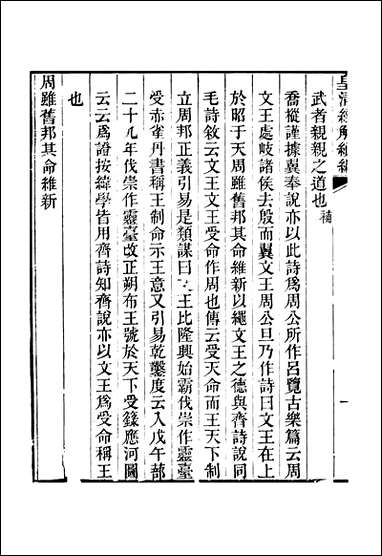 皇清經解續編
武者親親之道也禱
喬樅謹據翼奉說亦以此詩爲周公所作呂覽古樂篇云周
文王處岐諸侯去殷而翼文王周公旦乃作詩曰文王在上
於昭于天周雖舊邦其命維新以繩文王之德與齊詩說同
毛詩敘云文王文王受命作周也傳云受天命而王天下制
立周邦正義引易是類謀曰文王比隆興始霸伐崇作靈臺
受赤雀丹書稱王制命示王意又引易乾鑿度云入戊午蔀
二十九年伐崇作靈臺改正朔布王號於天下受籙應河圖
云云爲證按緯學皆用齊詩知齊說亦以文王爲受命稱王
也
周雖舊邦其命維新